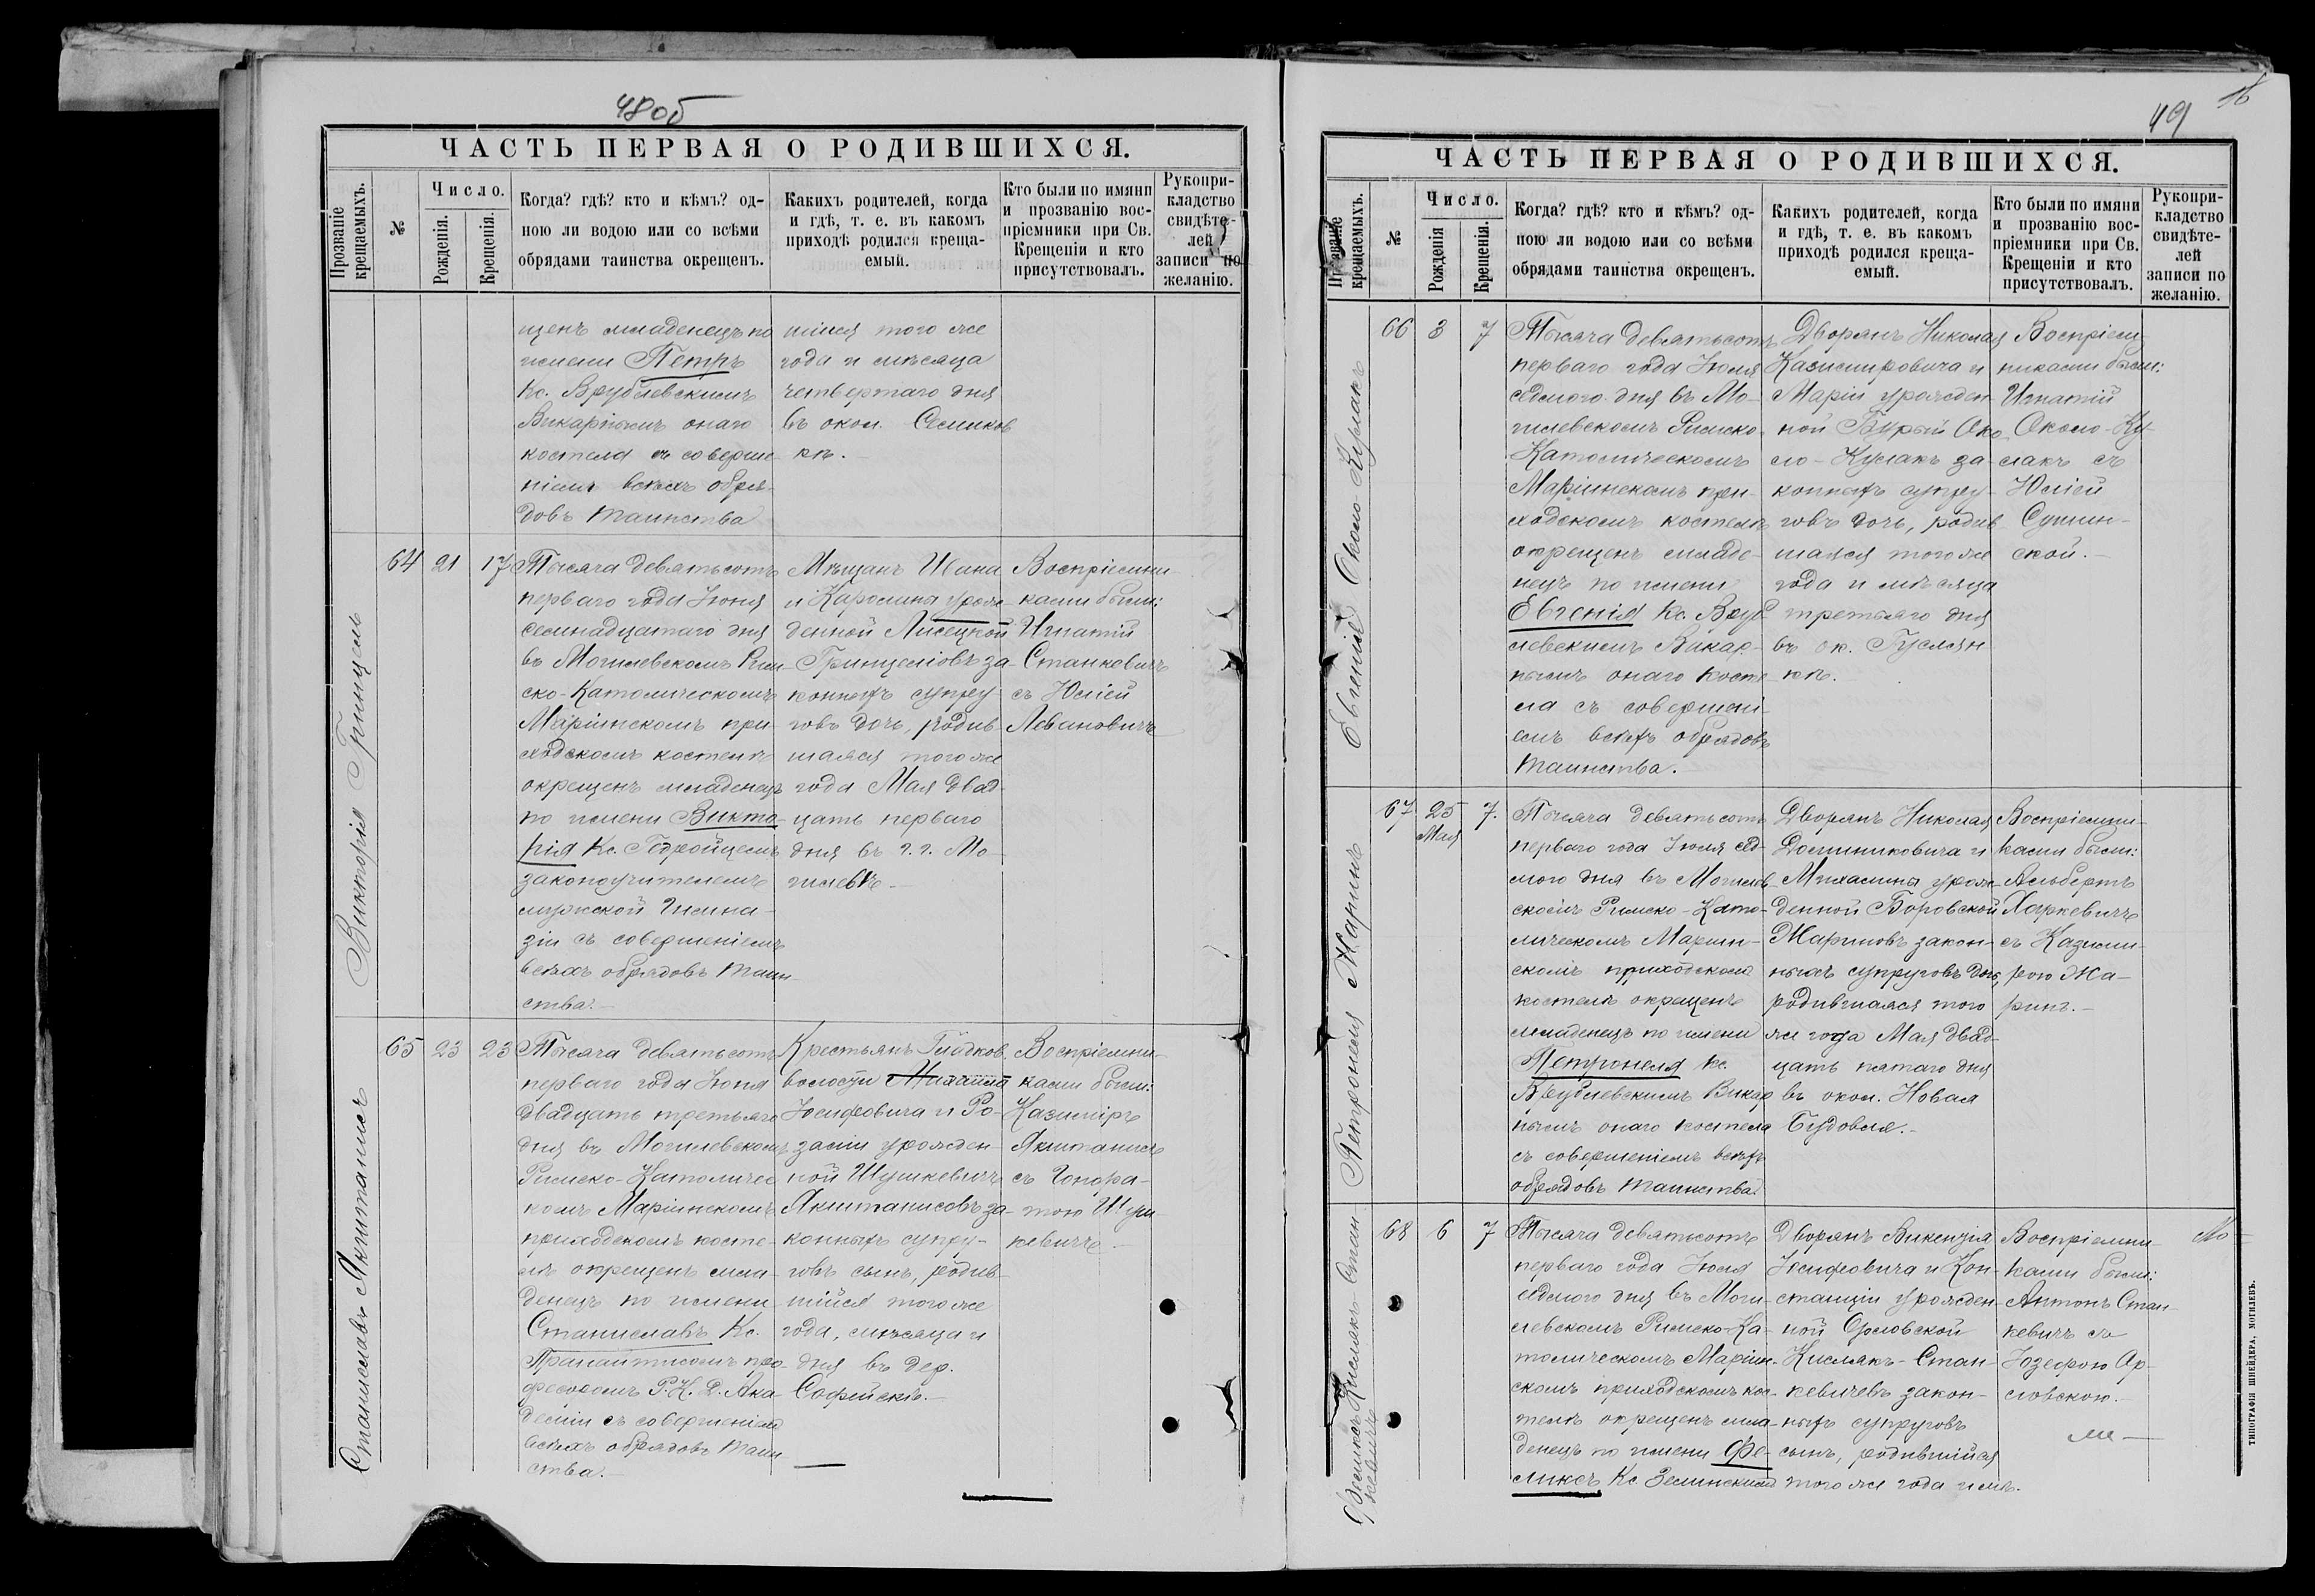 48об
ЧАСТЬ ПЕРВАЯ О РОДИВШИХСЯ.
Прозваніе крещаемыхъ.
№
Число.
Рожденія.
Крещенія.
Когда? гдѣ? кто и кѣмъ? од-
ною ли водою или со всѣми
обрядами таинства окрещенъ.
Какихъ родителей, когда
и гдѣ, т. е. въ какомъ
приходѣ родился креща-
емый.
Кто были по имяни
и прозванію вос-
пріемники при Св.
Крещеніи и кто
присутствовалъ.
Рукопри-
кладство
свидѣте-
лей
записи по
желанію.
щенъ младенецъ по
имени Петръ
Кс. Врублевскимъ
Викарнымъ онаго
костела съ соверше-
ніемъ всѣхъ обря-
довъ таинства
шійся того же
года и мѣсяца
четвертаго дня
въ окол. Селиков
кѣ.
Викторія Гринцель
64 21 17
Тысяча девятьсотъ
перваго года Іюня
семнадцатаго дня
въ Могилевскомъ Рим-
ско-Католическомъ
Маріинскомъ при-
ходскомъ костелѣ
окрещенъ младенецъ
по имени Викто-
рія Кс. Гедройцемъ
законоучителемъ
мужской Гимна-
зіи съ совершеніемъ
всѣхъ обрядовъ таин-
ства.
Мѣщанъ Ивана
и Каролины урож-
денной Лисецкой
Гринцелювъ за-
конныхъ супру-
говъ дочь, родив-
шаяся того же
года Мая двад-
цать перваго
дня въ г. г. Мо-
гилевѣ.
Воспріемни-
ками были:
Игнатій
Станкевичъ
съ Юліей
Левановичъ
Станиславъ Якштанисъ
65 23 23
Тысяча девятьсотъ
перваго года Іюня
двадцать третьяго
дня въ Могилевскомъ
Римско-Католичес
комъ Маріинскомъ
приходскомъ косте-
лѣ окрещенъ мла-
денецъ по имени
Станиславъ Кс.
Пранайтисомъ про-
фессоромъ Р. К. Д. Ака
деміи съ совершеніемъ
всѣхъ обрядовъ таин
ства.
Крестьянъ Гладков.
волости Михаила
Іосифовича и Ро-
заліи урожден-
ной Шушкевичъ
Якштанисовъ за-
конныхъ супру-
говъ сынъ, родив-
шійся того же
года, мѣсяца и
дня въ дер.
Софійскѣ.
Воспріемни-
ками были:
Казиміръ
Якштанисъ
съ Гонора-
тою Шуш-
кевичъ.
49
ЧАСТЬ ПЕРВАЯ О РОДИВШИХСЯ.
Прозваніе крещаемыхъ.
№
Число.
Рожденія
Крещенія.
Когда? гдѣ? кто и кѣмъ? од-
ною ли водою или со всѣми
обрядами таинства окрещенъ.
Какихъ родителей, когда
и гдѣ, т. е. въ какомъ
приходѣ родился креща-
емый.
Кто были по имяни
и прозванію вос-
пріемники при Св.
Крещеніи и кто
присутствовалъ.
Рукопри-
кладство
свидѣте-
лей
записи по
желанію.
Евгенія Около-Кулакъ
66 3 7
Тысяча девятьсотъ
перваго года Іюля
седмого дня въ Мо-
гилевскомъ Римско-
Католическомъ
Маріинскомъ при-
ходскомъ костелѣ
окрещенъ младе-
нецъ по имени
Евгенія Кс. Вруб-
левскимъ Викар-
нымъ онаго косте
ла съ совершені-
емъ всѣхъ обрядовъ
таинства.
Дворянъ Николая
Казимировича и
Маріи урожден-
ной Бурый Око-
ло-Кулакъ за-
конныхъ супру-
говъ дочь, родив
шаяся того же
года и мѣсяца
третьяго дня
въ ок. Гуслян
кѣ.
Воспріем-
никами были:
Игнатій
Около-Ку-
лакъ съ
Юліей
Сушин-
ской.
Петронеля Жаринъ
67 25 7.
Мая
Тысяча девятьсотъ
перваго года Іюля сед-
мого дня въ Могилев-
скомъ Римско-Като-
лическомъ Маріин-
скомъ приходскомъ
костелѣ окрещенъ
младенецъ по имени
Петронеля Кс.
Врублевскимъ Викар
нымъ онаго костела
съ совершеніемъ всѣхъ
обрядовъ таинства.
Дворянъ Николая
Доминиковича и
Михалины урож-
денной Боровской
Жариновъ закон-
ныхъ супруговъ дочь,
родившаяся того
же года Мая двад-
цать пятаго дня
въ окол. Новая
Будовля.
Воспріемни-
ками были:
Альбертъ
Харкевичъ
съ Казими-
рою Жа-
ринъ.
Феликсъ Кисляко-Стан
кевичъ
68 6 7
Тысяча девятьсотъ
перваго года Іюля
седмого дня въ Моги-
левскомъ Римско-Ка-
толическомъ Маріин-
скомъ приходскомъ кос-
телѣ окрещенъ мла-
денецъ по имени Фе-
ликсъ Кс. Зелинскимъ
Дворянъ Викензія
Іосифовича и Кон-
станціи урожден-
ной Орловской
Кислякъ-Стан-
кевичевъ закон-
ныхъ супруговъ
сынъ, родившійся
того же года и мѣ.
Воспріемни-
ками были:
Антонъ Стан-
кевичъ съ
Юзефою Ор-
ловскою.
ТИПОГРАФІЯ ШНЕЙДЕРА, МОГИЛЕВЪ.